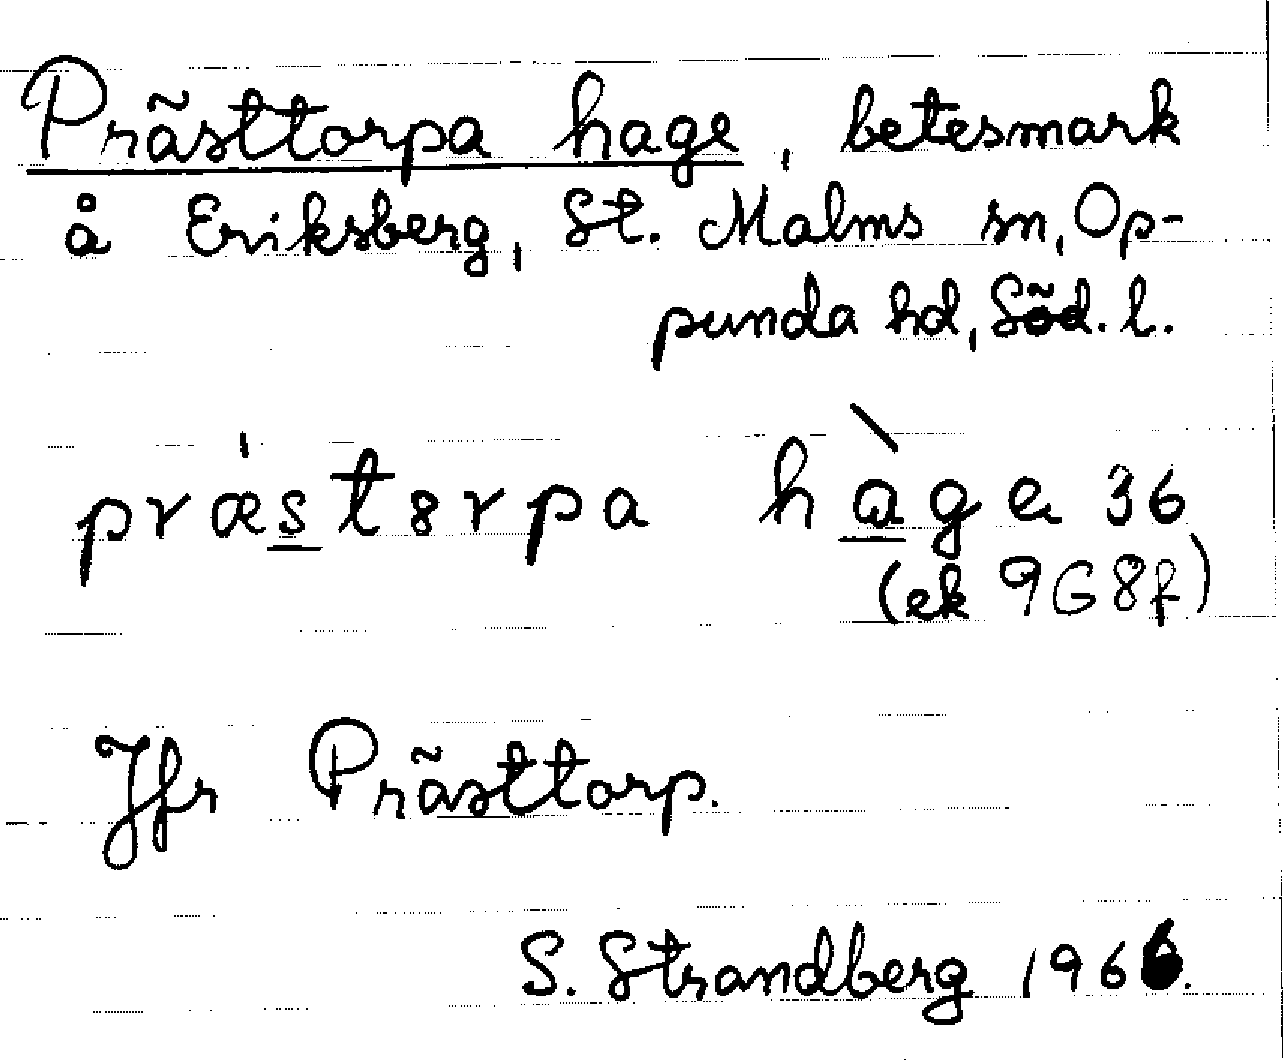 Prästtorpa hage, betesmark
å Eriksberg, St. Malms sn, Op-
punda hd, Söd. l.
præ̍st8rpa hàge 36
(ek 9G8f)
Jfr Prästtorp.
S. Strandberg 1966.